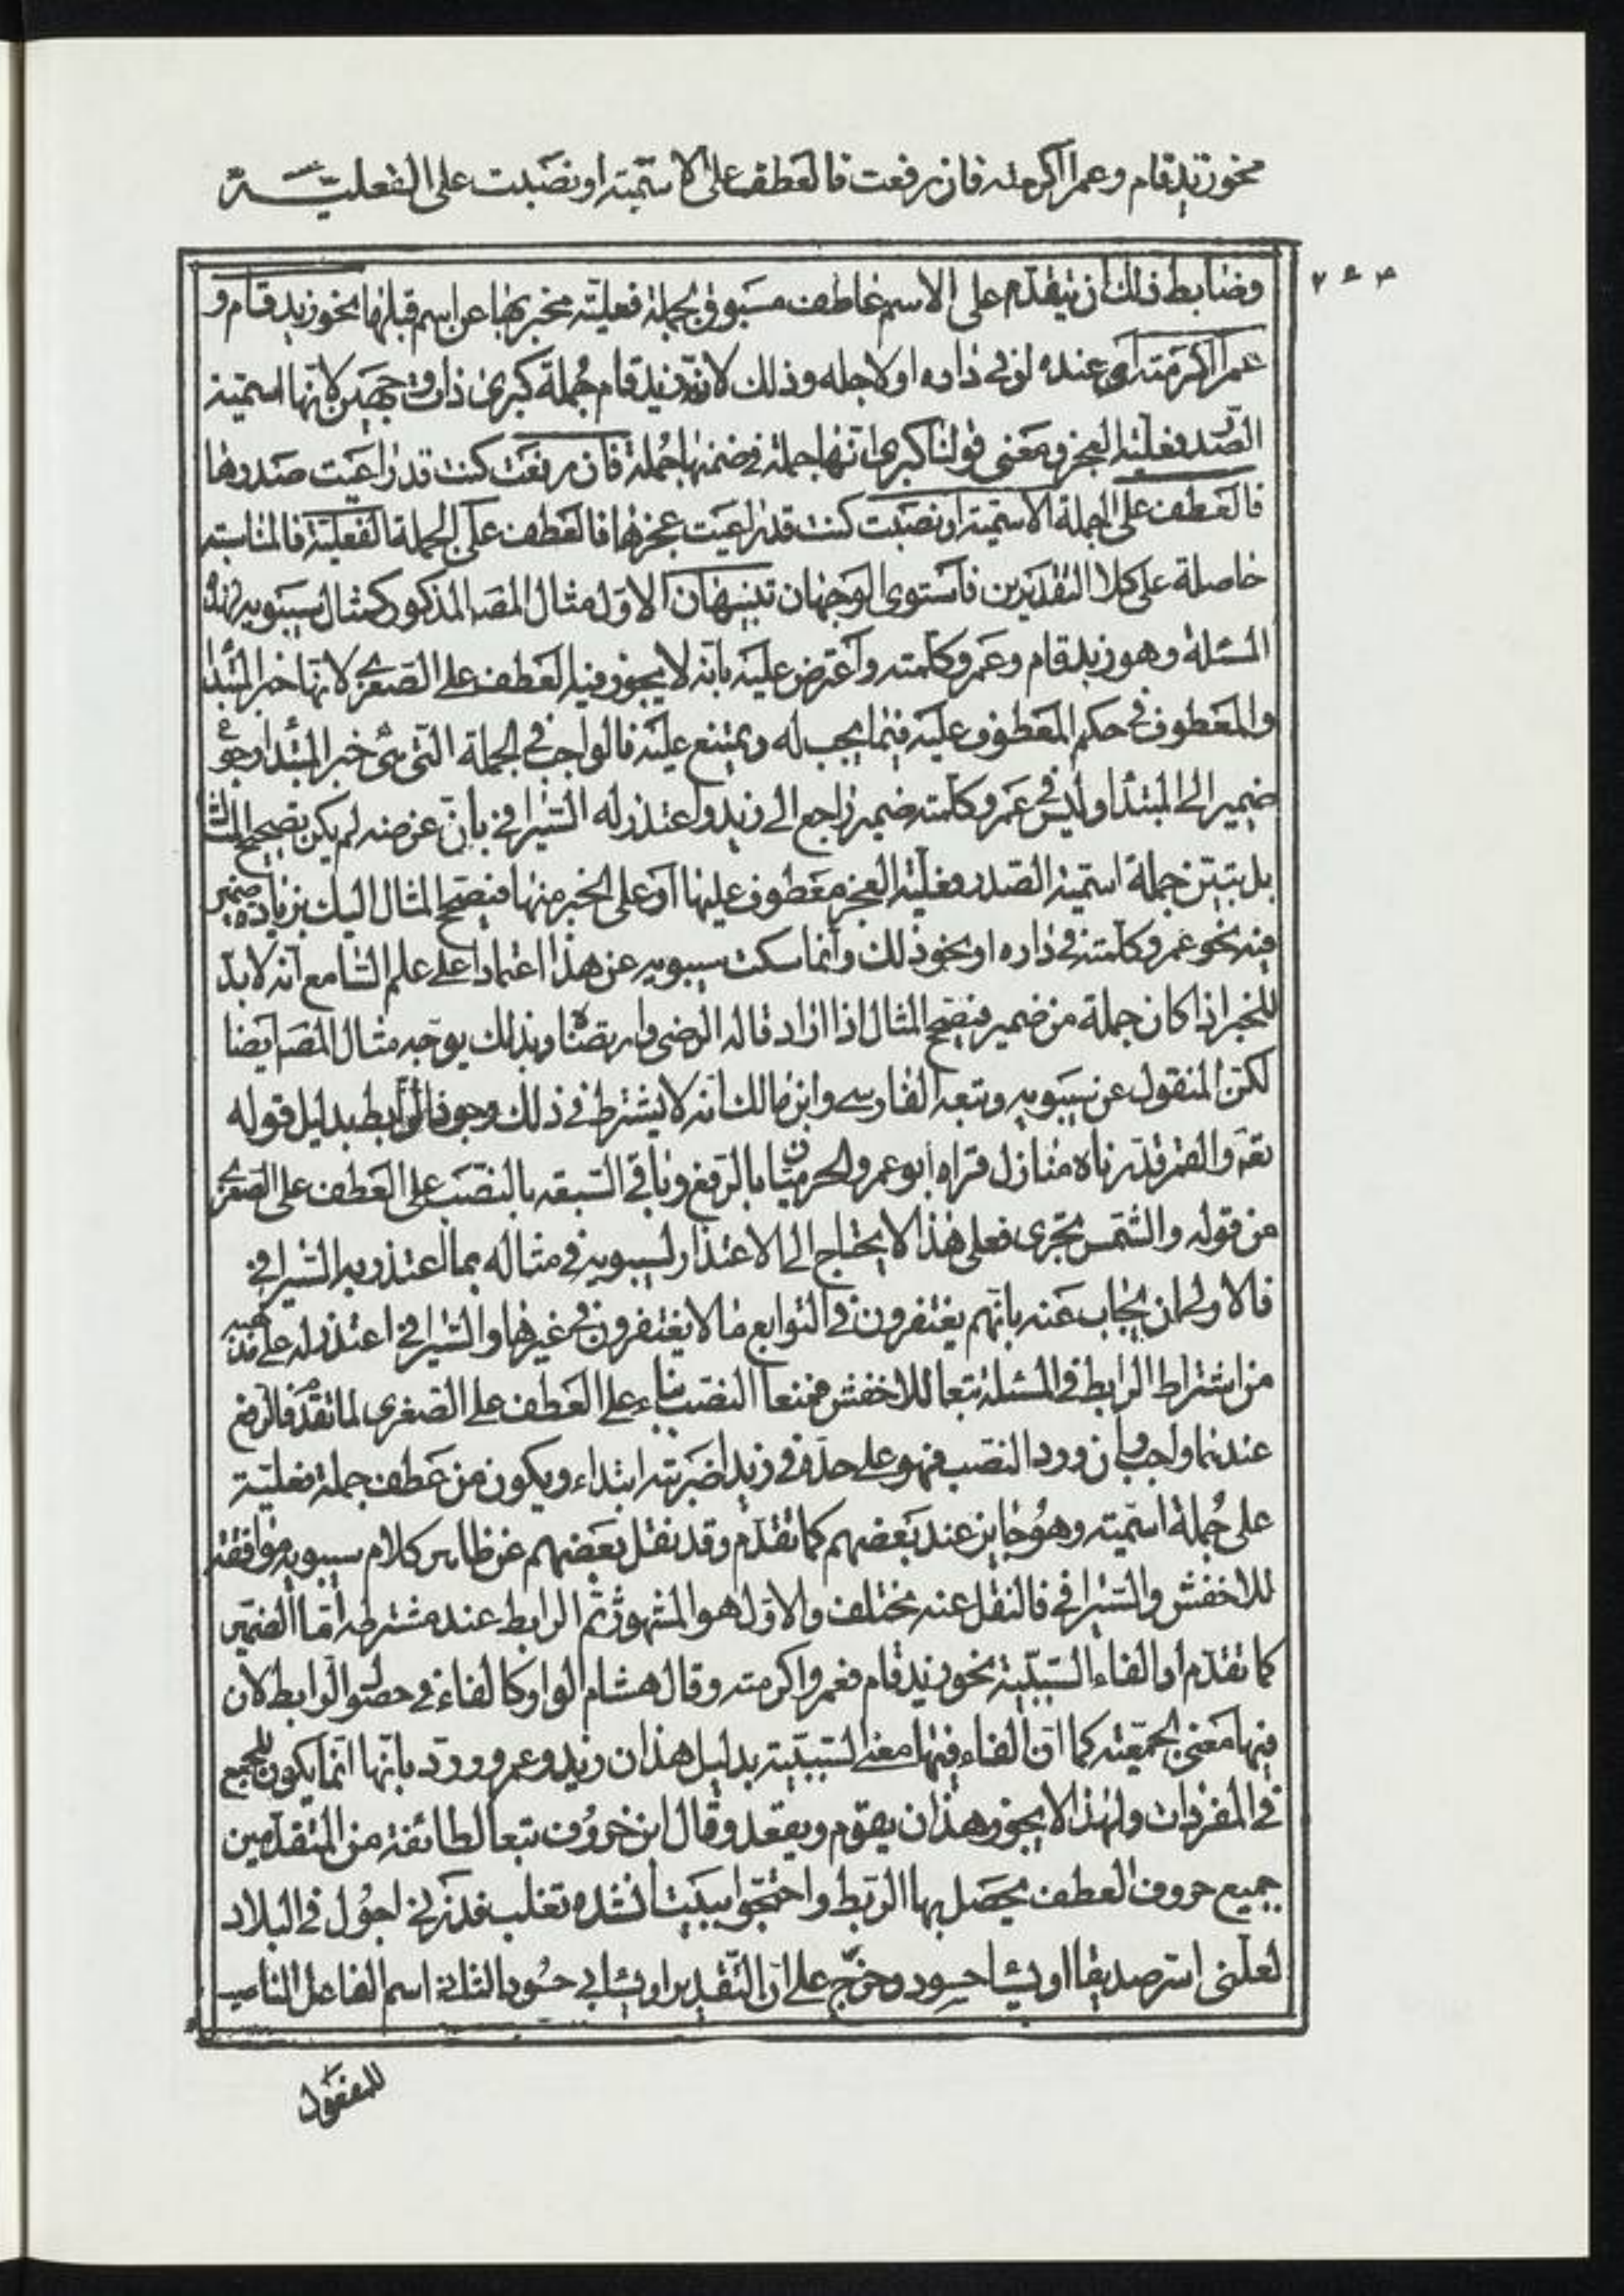 نحو زيد قام وعمرا اكرمته فان رفعت فالعطف على الاسمية او نصبت على الفعلية
وضابط ذلك ان يتقدم على الاسم عاطف مسبوق بجملة فعلية مخبر بها عن اسم قبلها نحو زيد قام و
عمرا اكرمته اى عنده او فى داره او لاجله وذلك لان زيد قام جملة كبرى ذات وجهين لانها اسمية
الصدر فعلية العجز ومعنى قولنا كبرى انها جملة فى ضمنها جملة فان رفعت كنت قد راعيت صدرها
فالعطف على الجملة الاسمية او نصبت كنت قد راعيت عجزها فالعطف على الجملة الفعلية فالمناسبة
حاصلة على كلا التقديرين فاستوى الوجهان تنبيهان الاول مثال المصـ المذكور كمثال سيبويه لهذه
المسئلة وهو زيد قام وعمرو كلمته واعترض عليه بانه لا يجوز فيه العطف على الصغرى لانها خبر المبتدا
والمعطوف فى حكم المعطوف عليه فيما يجب له ويمتنع عليه فالواجب فى الجملة التى هى خبر المبتدا رجوع
ضمير الى المبتدا وليس فى عمرو كلمته ضمير راجع الى زيد واعتذر له السيرافى بان غرضه لم يكن تصحيح المثال
بل تبيين جملة اسمية الصدر فعلية العجز معطوف عليها او على الخبر منها فتصحيح المثال اليك بزيادة ضمير
فيه نحو عمرو كلمته فى داره او نحو ذلك وانما سكت سيبويه عن هذا اعتمادا على علم السامع انه لا بد
للخبر اذا كان جملة من ضمير فيصحح المثال اذا اراد قاله الرضى وارتضاه وبذلك يوجه مثال المصـ ايضا
لكن المنقول عن سيبويه وتبعه الفارسى وابن مالك انه لا يشترط فى ذلك وجود الرابط بدليل قوله
تعـ والقمر قدرناه منازل قراه ابو عمرو والحرميان بالرفع وباقى السبعة بالنصب على العطف على الصغرى
من قوله والشمس تجرى فعلى هذا لا يحتاج الى الاعتذار لسيبويه فى مثاله بما اعتذر به السيرافى
فالاولى ان يجاب عنه بانهم يغتفرون فى التوابع ما لا يغتفرون فى غيرها والسيرافى اعتذر له على مذهبه
من اشتراط الرابط فى المسئلة تبعا للاخفش فمنعا النصب بناء على العطف على الصغرى لما تقدم فالرفع
عندهما واجب وان ورد النصب فهو على حده فى زيدا ضربته ابتداء ويكون من عطف جملة فعلية
على جملة اسمية وهو جايز عند بعضهم كما تقدم وقد نقل بعضهم عن ظاهر كلام سيبويه موافقته
للاخفش والسيرافى فالنقل عنه مختلف والاول هو المشهور ثم الرابط عند مشترطه اما الضمير
كما تقدم او الفاء السببية نحو زيد قام فعمرو اكرمته وقال هشام الواو كالفاء فى حصول الرابط لان
فيها معنى الجمعية كما ان الفاء فيها معنى السببية بدليل هذان زيد وعمرو ورد بانها انما يكون للجمع
فى المفردات ولهذا لا يجوز هذان يقوم ويقعد وقال ابن خروف تبعا لطائفة من المتقدمين
جميع حروف العطف يحصل بها الربط واحتجوا ببيت انشده ثعلب فذرنى اجول فى البلاد
لعلنى اسر صديقا او يشا حسود وخرج على ان التقدير او يشا بى حسود الثانى اسم الفاعل الناصب
للمفعول